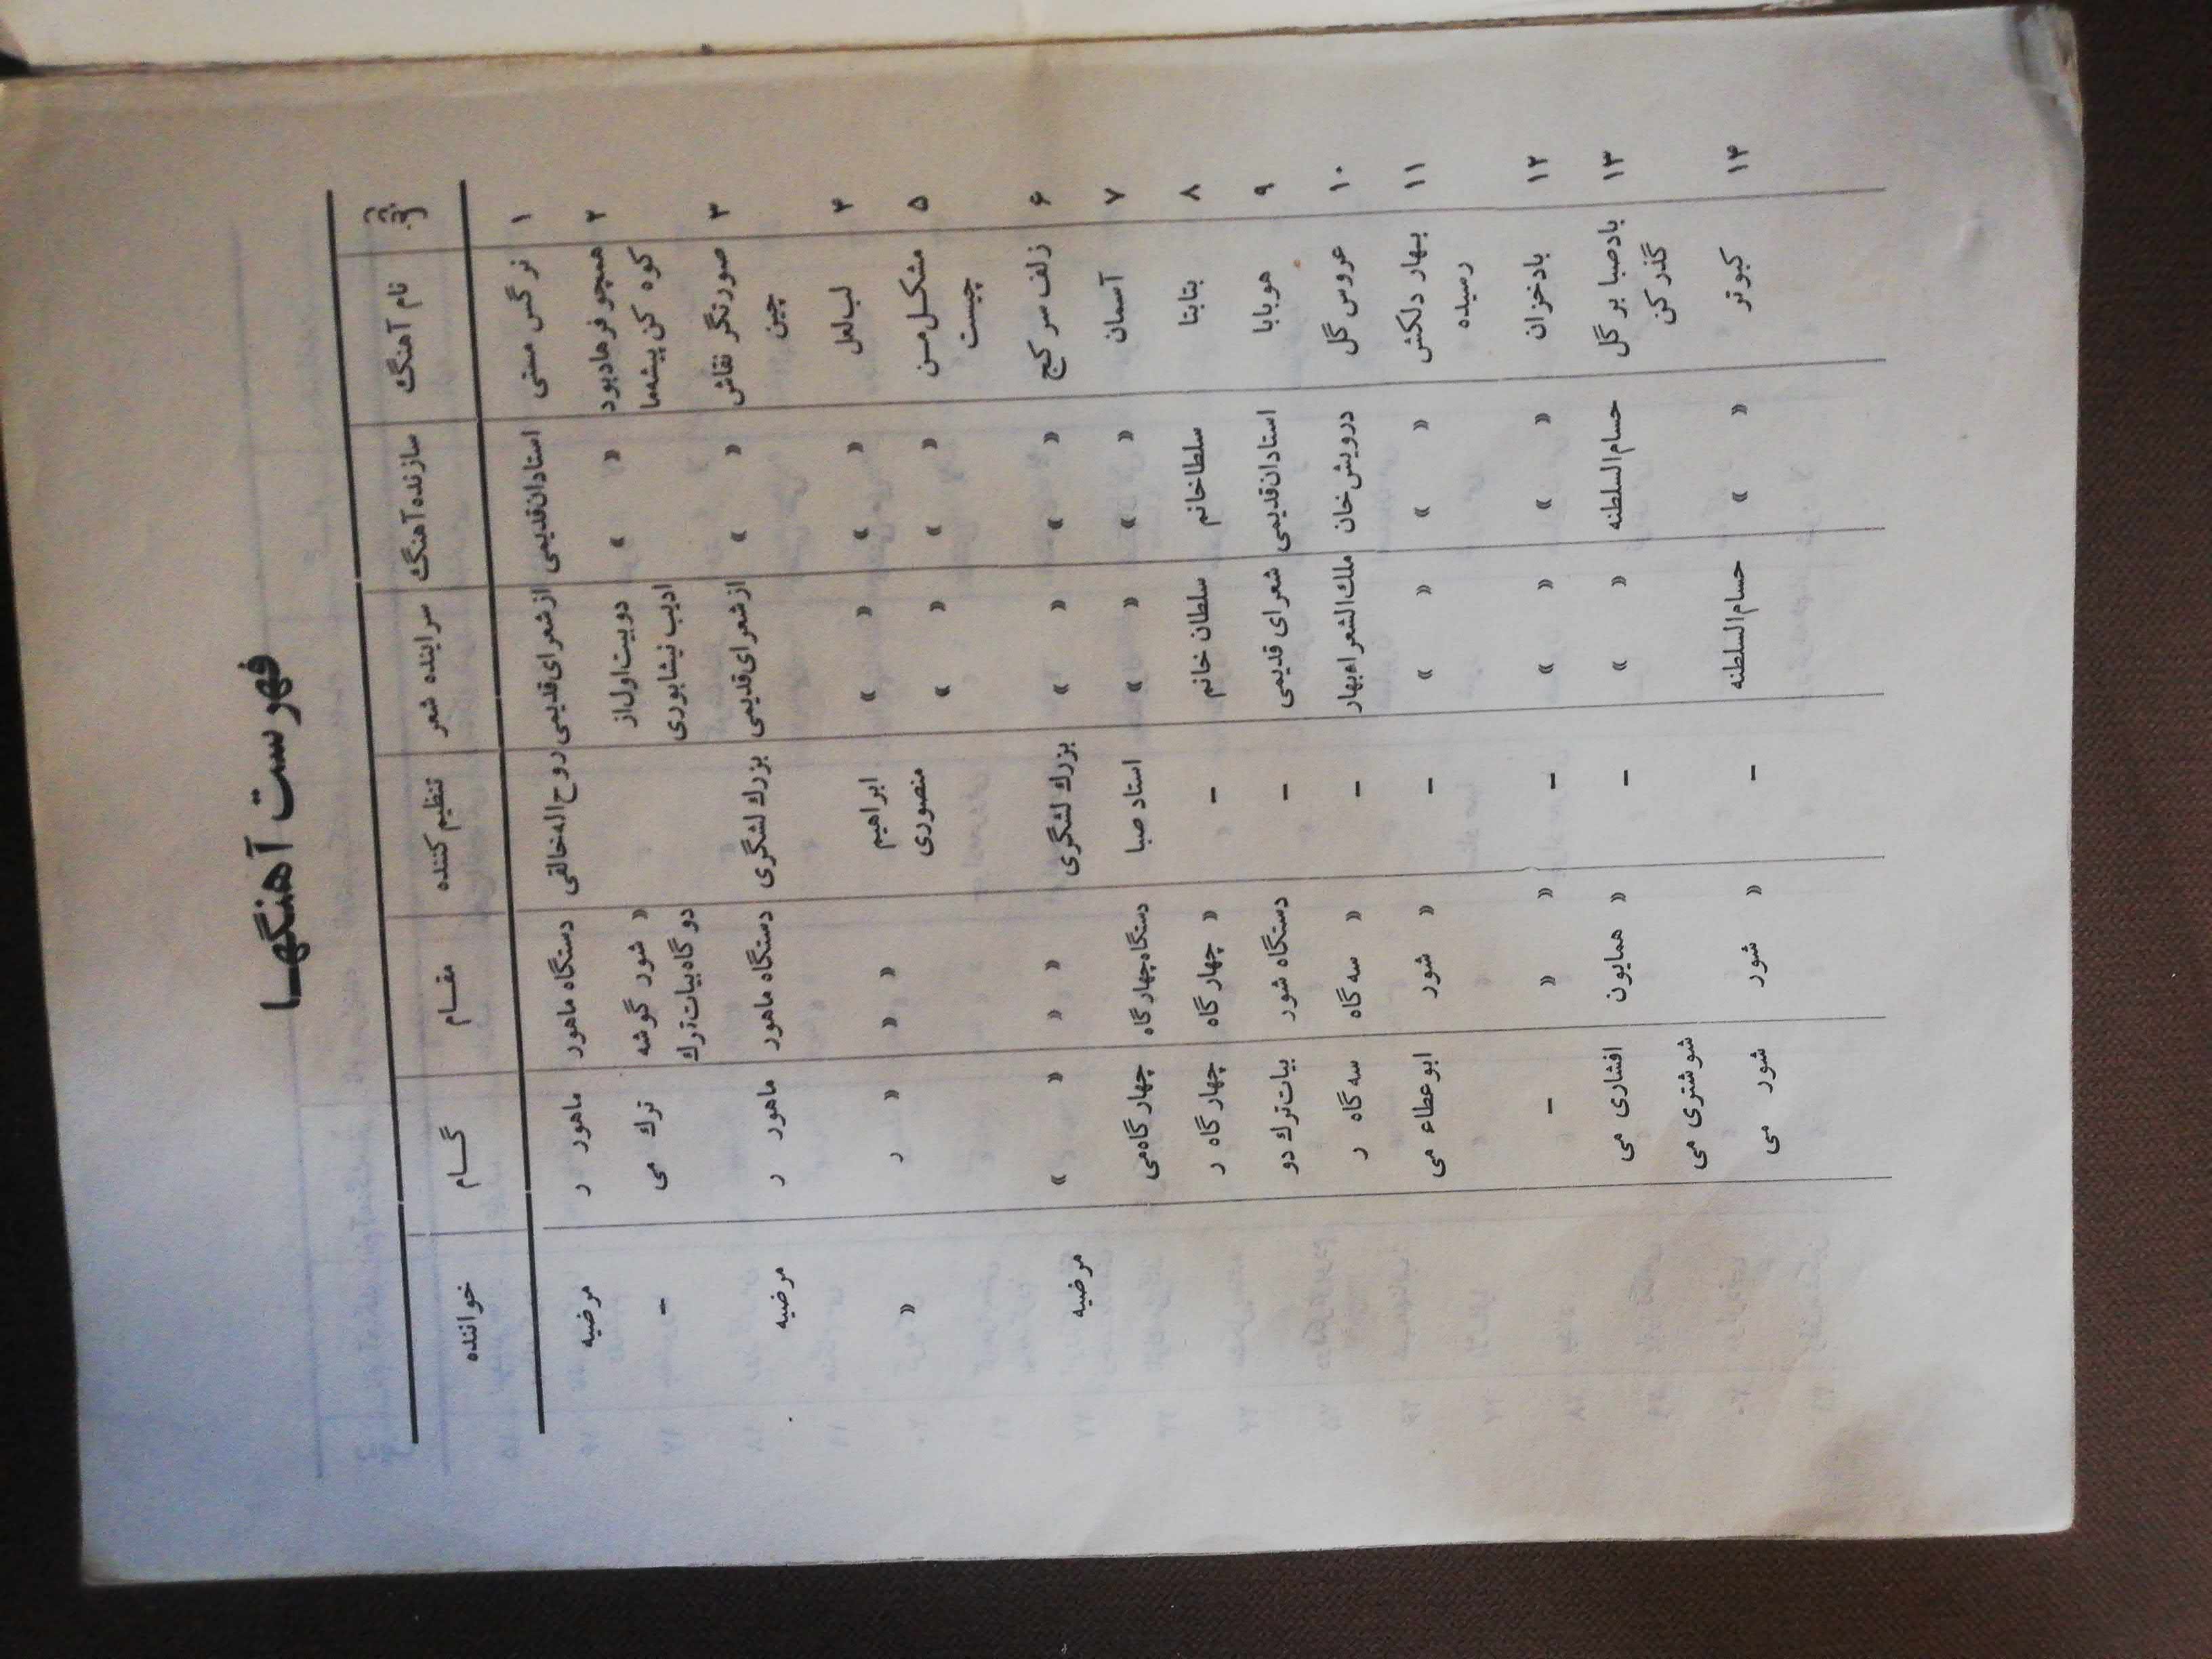 فهرست آهنگهـا
نام آهنگ سازنده آهنگ سراینده شعر تنظیم کننده مقــام گــام خواننده
۱ نرگس مستی استادان‌قدیمی از شعرای‌قدیمی روح‌اله‌خالقی دستگاه ماهور ماهور ر مرضیه
۲ همچو فرهاد بود » » دوبیت‌اول‌از » شور گوشه ترك می -
کوه کن پیشه‌ما ادیب نیشابوری دوگاه بیات‌ترك
۳ صورتگر نقاش » » از شعرای‌قدیمی بزرك لشگری دستگاه ماهور ماهور ر مرضیه
چین
۴ لب لعل » » » » ابراهیم » » » ر »
۵ مشکــل مـن » » » » منصوری
چیست
۶ زلف سر کج » » » » بزرك لشگری » » » » مرضیه
۷ آسمان » » » » استاد صبا دستگاه‌چهارگاه چهارگاه‌می
۸ بتا بتا سلطاخانم سلطان خانم - » چهارگاه چهارگاه ر
۹ هوبابا استادان‌قدیمی شعرای قدیمی - دستگاه شور بیات‌ترك دو
۱۰ عروس گل درویش‌خان ملك‌الشعراء‌بهار - » سه گاه سه گاه ر
۱۱ بهار دلکش » » » » - » شور ابوعطاء می
رسیده
۱۲ بادخزان » » » » - » » -
۱۳ بادصبا بر گل حسام‌السلطنه » » - » همایون افشاری می
گذر کن شوشتری می
۱۴ کبوتر » » حسام‌السلطنه - » شور شور می